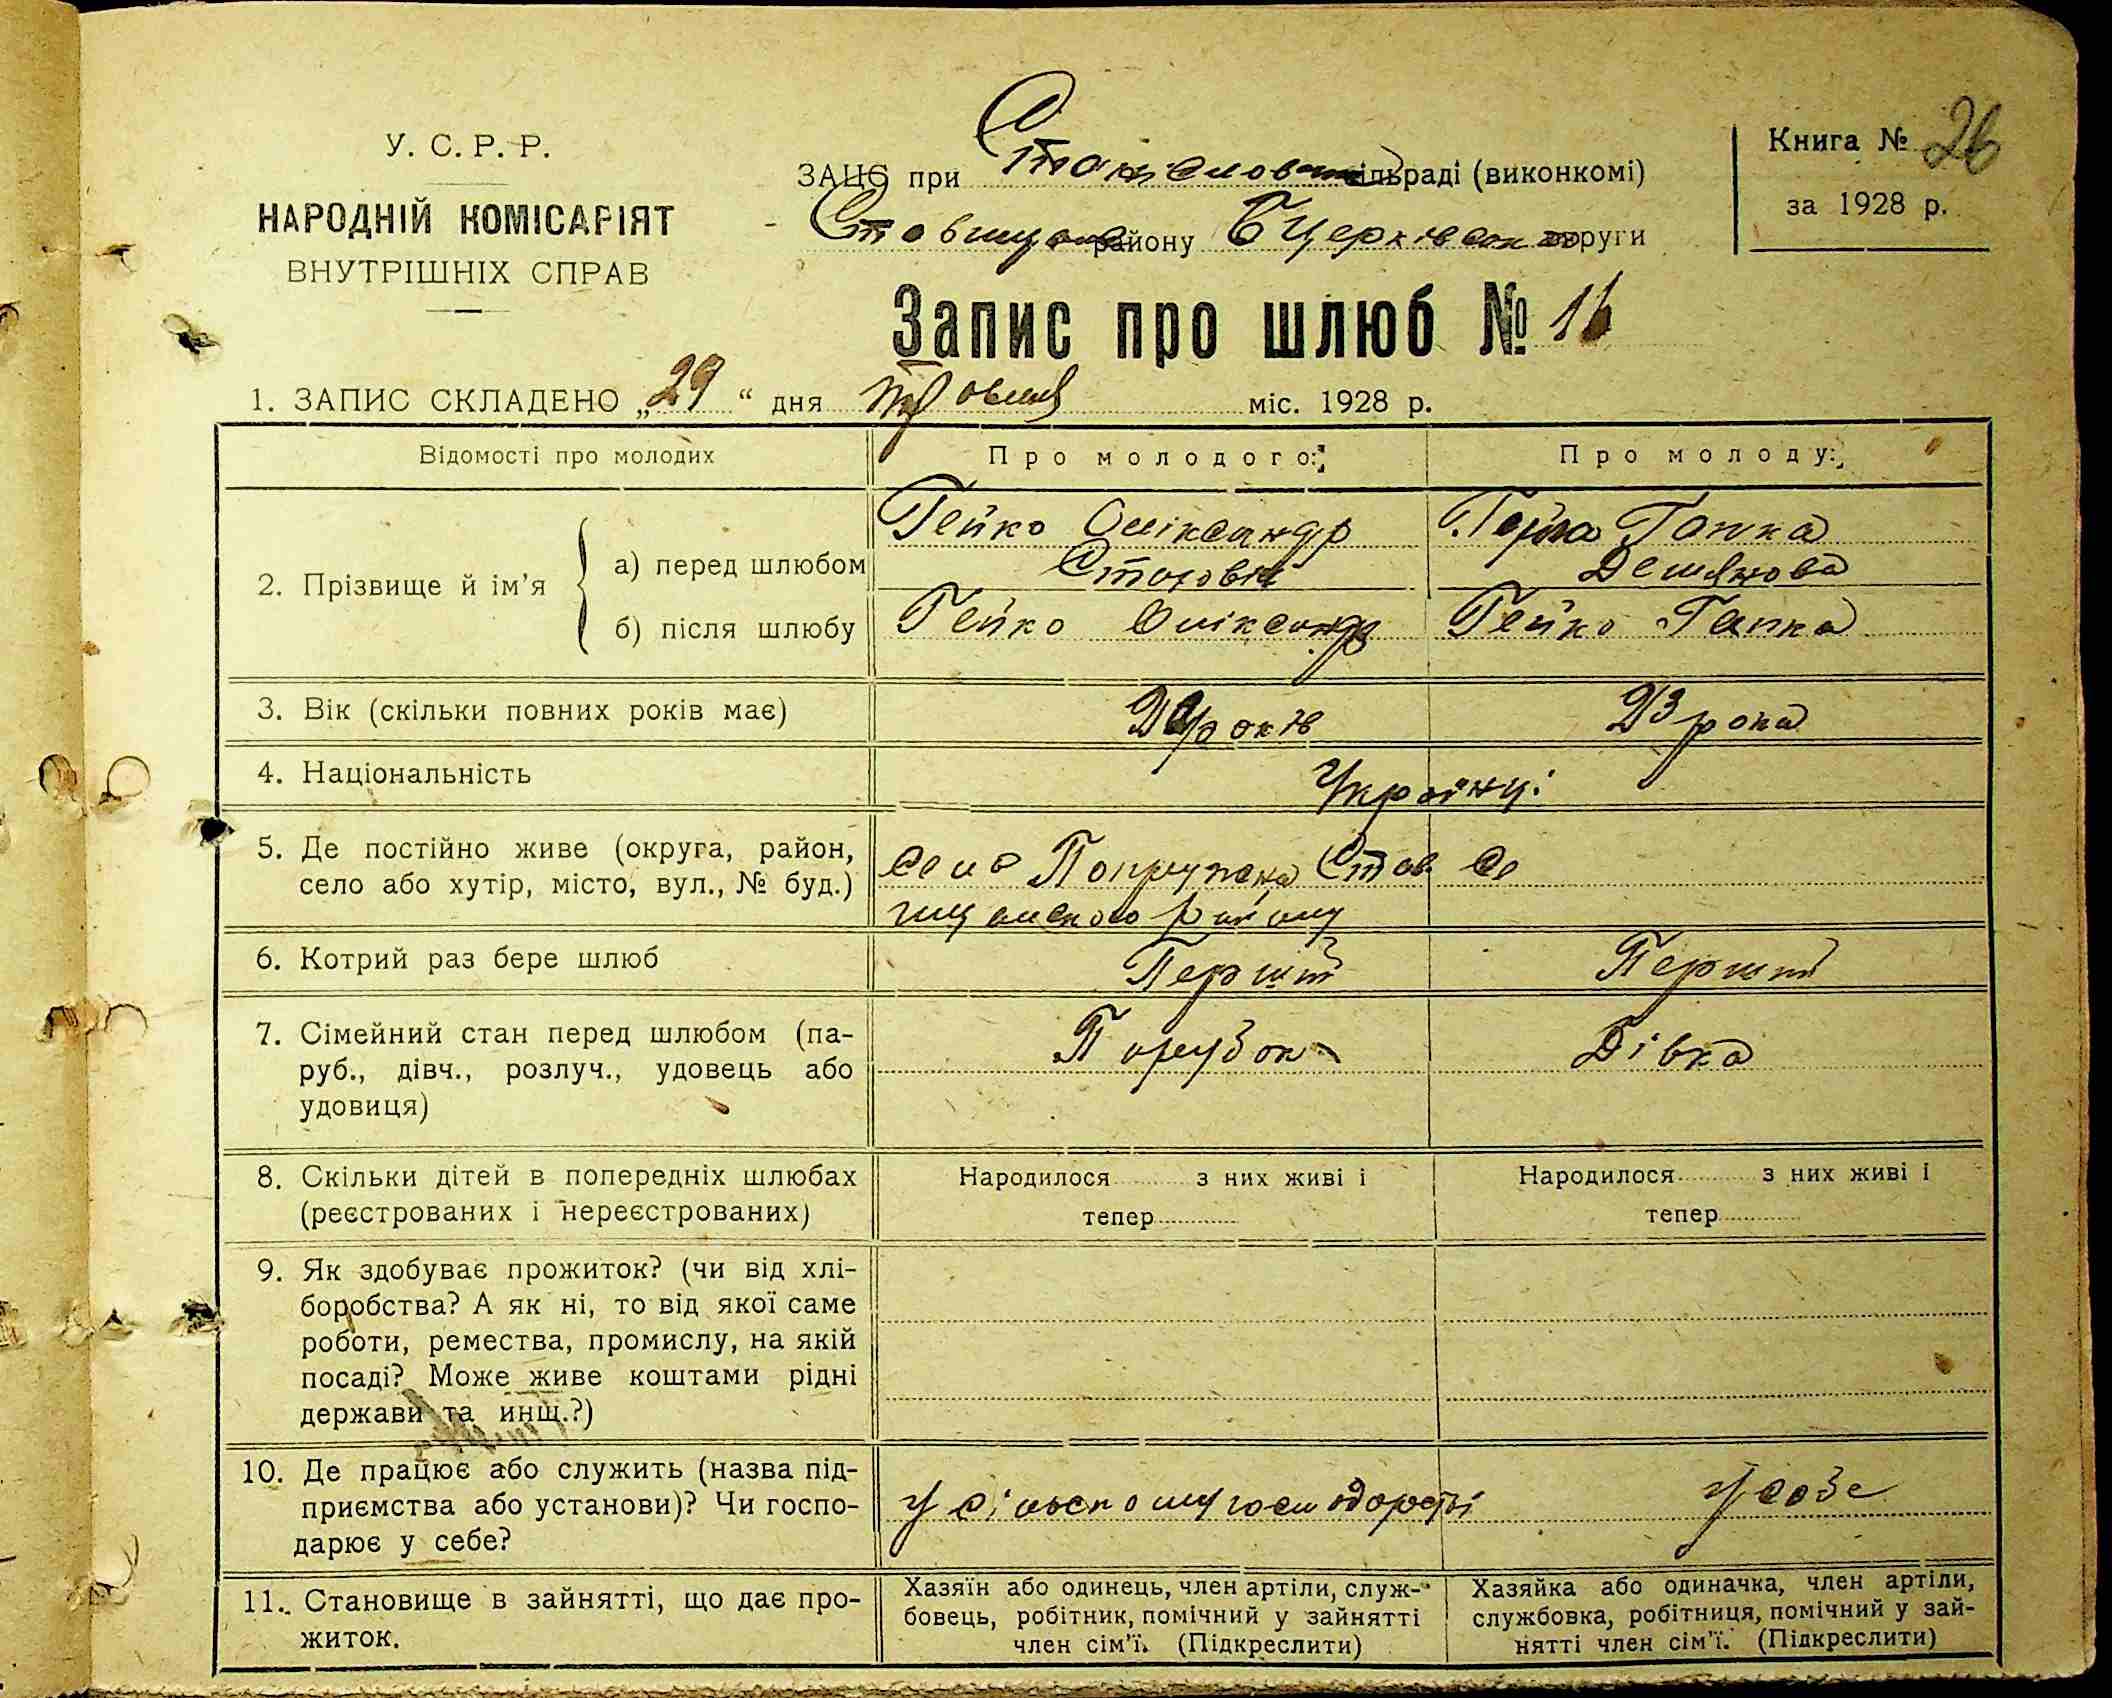 У. С. Р. Р.
НАРОДНІЙ КОМІСАРІЯТ
ВНУТРІШНІХ СПРАВ
ЗАЦС при сільраді (виконкомі)
району БЦерківської округи
Книга № 26
за 1928 р.
Запис про шлюб № 16
1. ЗАПИС СКЛАДЕНО „29“ дня травня міс. 1928 р.
Відомості про молодих
Про молодого:
Про молоду:
2. Прізвище й ім'я
а) перед шлюбом
Гейко Олександр
Гапка
Демянова
б) після шлюбу
Гейко Олександр
Гейко Гапка
3. Вік (скільки повних років має)
років
23 рока
4. Національність
Українці
5. Де постійно живе (округа, район,
село або хутір, місто, вул., № буд.)
село Попружна Став
ищанського району
6. Котрий раз бере шлюб
Перший
Перший
7. Сімейний стан перед шлюбом (па-
руб., дівч., розлуч., удовець або
удовиця)
Парубок
Дівка
8. Скільки дітей в попередніх шлюбах
(реєстрованих і нереєстрованих)
Народилося з них живі і
тепер
Народилося з них живі і
тепер
9. Як здобуває прожиток? (чи від хлі-
боробства? А як ні, то від якої саме
роботи, ремества, промислу, на якій
посаді? Може живе коштами рідні
держави та инщ.?)
10. Де працює або служить (назва під-
приємства або установи)? Чи госпо-
дарює у себе?
у сільському господарстві
у себе
11. Становище в зайнятті, що дає про-
житок.
Хазяїн або одинець, член артіли, служ-
бовець, робітник, помічний у зайнятті
член сім'ї. (Підкреслити)
Хазяйка або одиначка, член артіли,
службовка, робітниця, помічний у зай-
нятті член сім'ї. (Підкреслити)